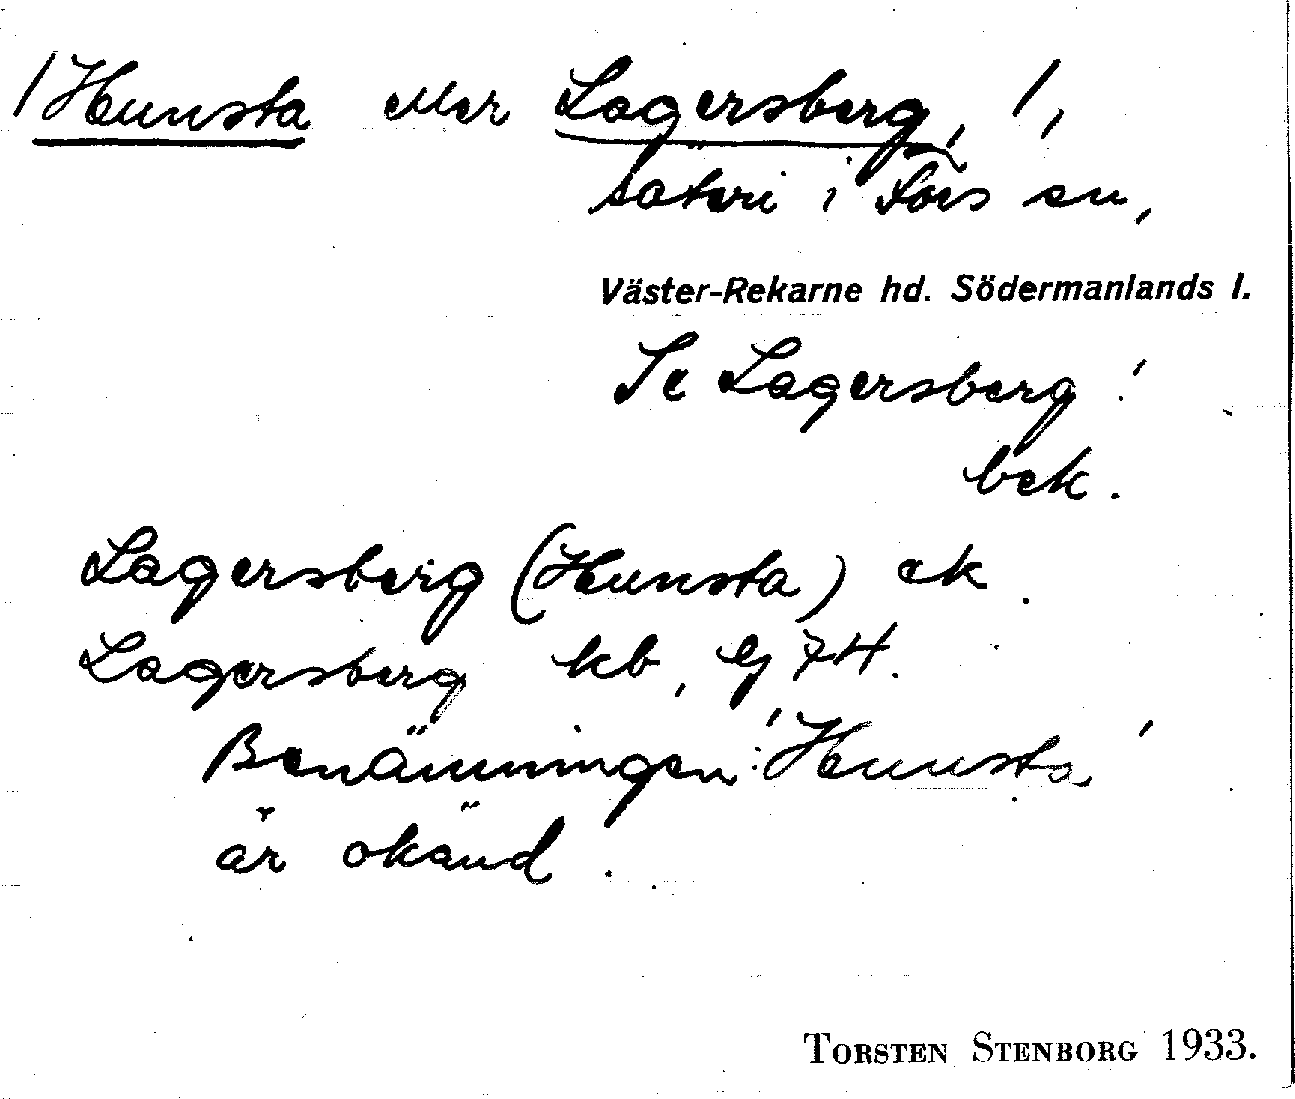 /Hunsta eller Lagersberg, /,
säteri i Fors sn,
Väster-Rekarne hd. Södermanlands l.
Se Lagersberg!
bek.
Lagersberg (Hunsta) ek.
Lagersberg kb, lj 74.
Benämningen 'Hunsta'
är okänd.
TORSTEN STENBORG 1933.